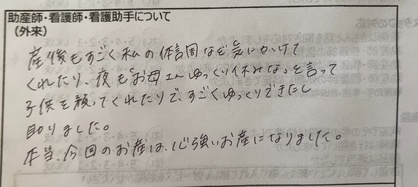 助産師・看護師・看護助手について
(外来)
産後もすごく私の体調など気にかけて
くれたり、夜も"お母さんゆっくり休みな"と言って
子供を預ってくれたりで、すごくゆっくりできたし
助りました。
本当、今回のお産は、心強いお産になりました。